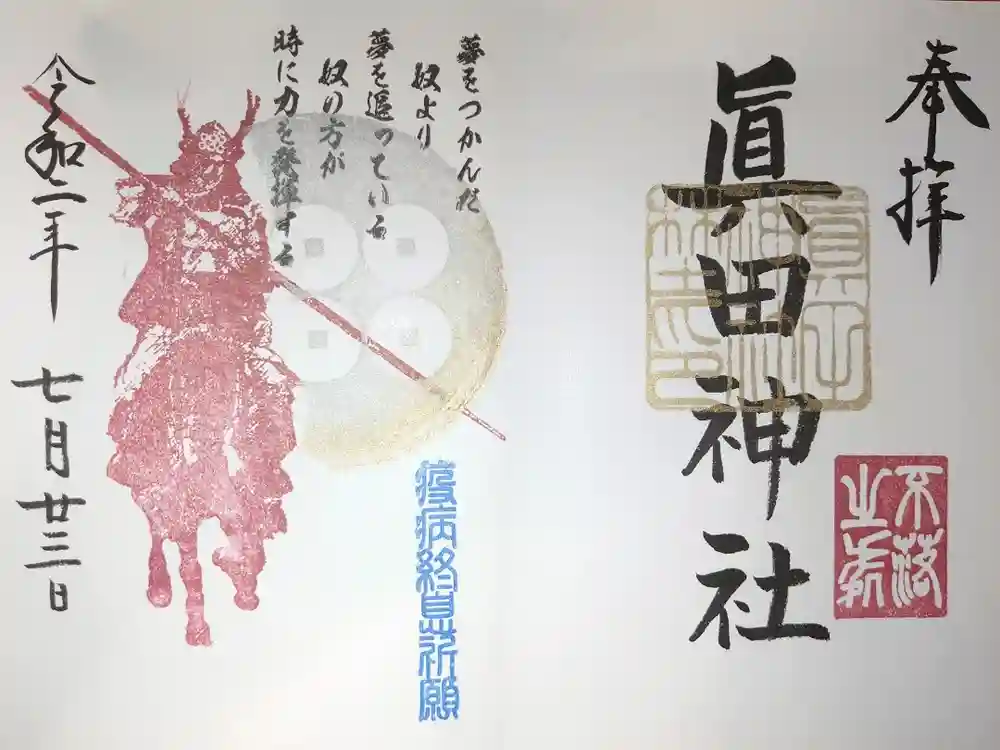 奉拝
眞田神社
眞田神社印
不落
之処
夢をつかんだ
奴より
夢を追っている
奴の方が
時に力を発揮する
疫病終息祈願
令和二年 七月廿三日